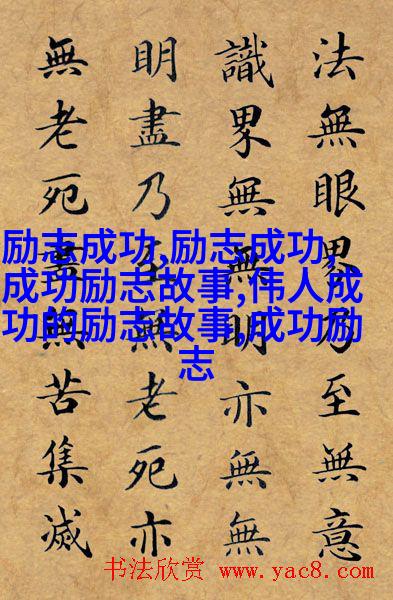 法無眼界乃至無意
識界無無明亦無無
明盡乃至無老死亦
無老死盡無苦集滅
励志成功,励志成功
成功励志故事,伟人成
功的励志故事,成功励
志
书法欣赏 www.yac8.com